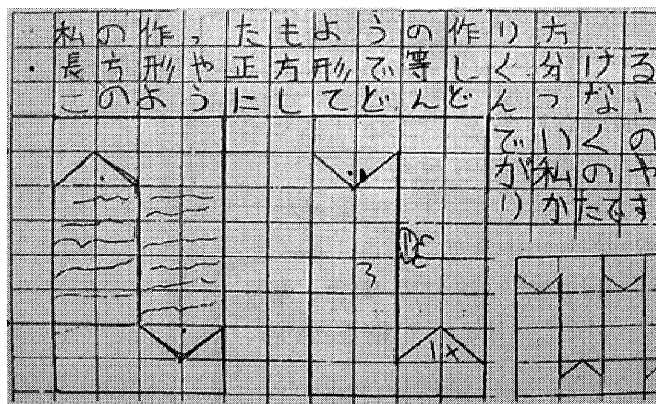 私の作ったもようの作り方
・長方形や正方形で等しく分ける
このようにしてどんどんつない
でいくの
が私のや
りかたです